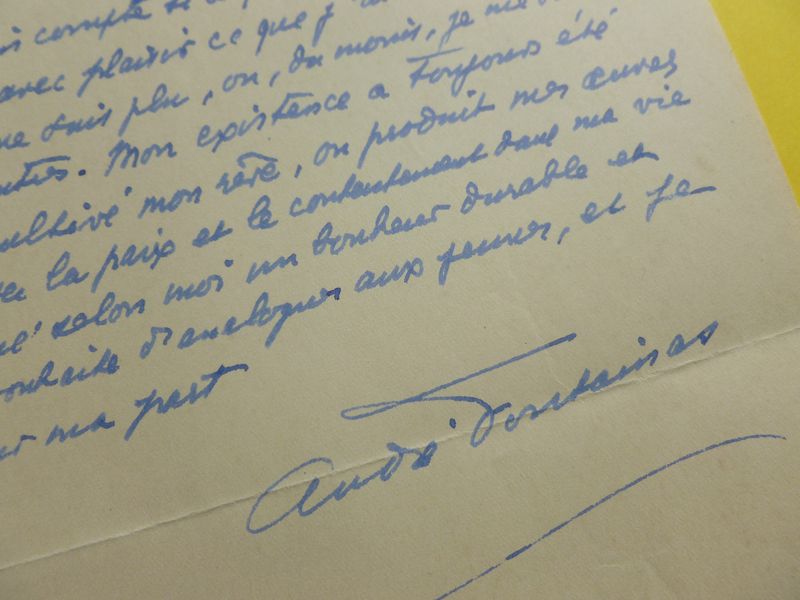 compte
avec plaisir ce que j'
suis plu, ou, du moins, je me
Mon existence a toujours été
cultivé mon rêve, ou produit mes œuvres
la paix et le contentement dans ma vie
selon moi un bonheur durable et
souhaite d'analogues aux jeunes, et je
ma part
André Fontainas